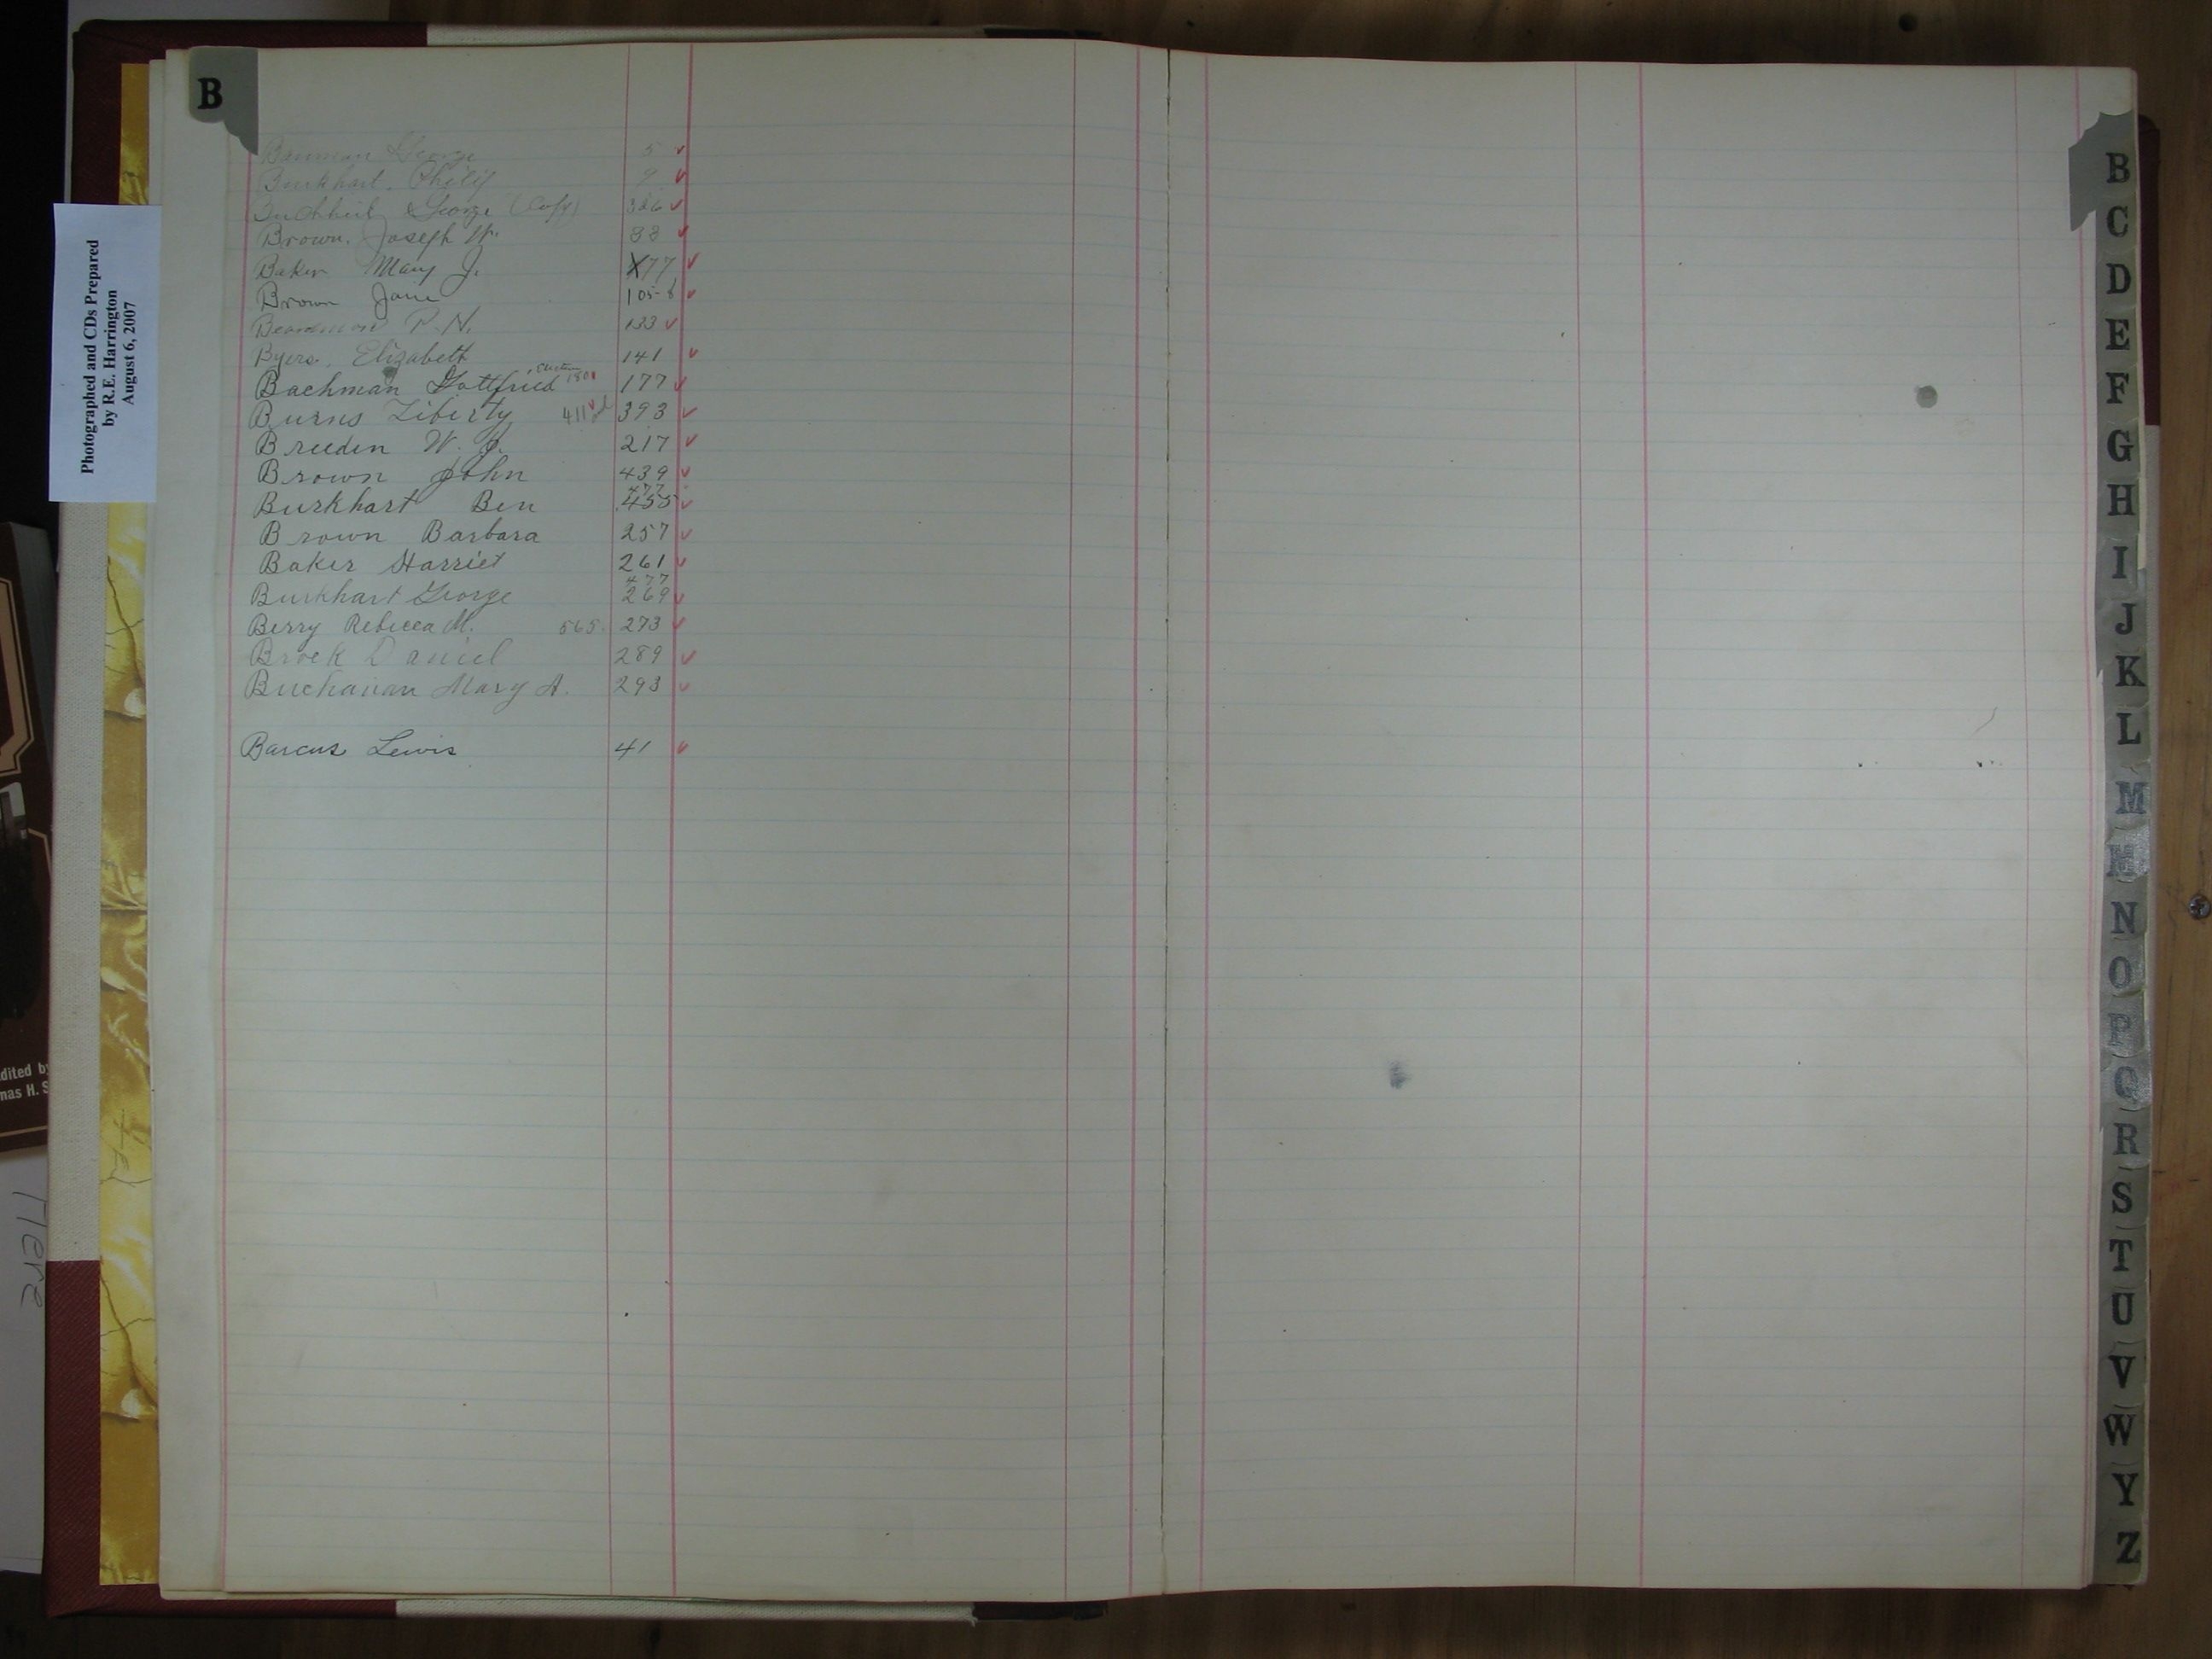 B
Photographed and CDs Prepared
by R.E. Harrington
August 6, 2007
George 5 ✓
Burkhart. Philip ✓
George (Copy) 326 ✓
Brown. Joseph W. 33 ✓
Baker Mary J. X77 ✓
Brown Jane 105-6 ✓
P. N. 133 ✓
Byers. Elizabeth 141 ✓
Bachman Gottfried 177 ✓
Burns Liberty 411 ✓ 393 ✓
Breeden W. J. 217 ✓
Brown John 439 ✓
477
Burkhart Ben 455 ✓
Brown Barbara 257 ✓
Baker Harriet 261 ✓
477
Burkhart George 269 ✓
Berry Rebecca M. 565. 273 ✓
Brock Daniel 289 ✓
Buchanan Mary A. 293 ✓
Barcus Lewis 41 ✓
B
C
D
E
F
G
H
I
J
K
L
M
N
O
P
Q
R
S
T
U
V
W
Y
Z
dited by
mas H. S
Here